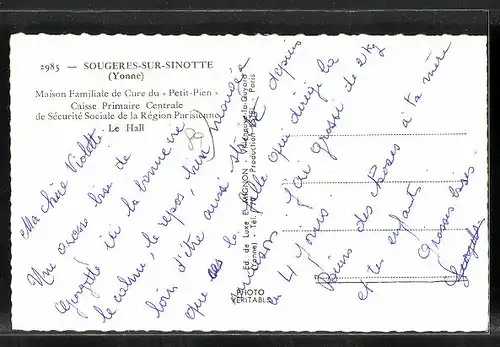 2985 — SOUGERES-SUR-SINOTTE
(Yonne)
Maison Familiale de Cure du « Petit-Pien »
Caisse Primaire Centrale
de Sécurité Sociale de la Région Parisienne
Le Hall
Ma chère Violette
Une grosse bise de
Georgette ici la bonne vie
le calme, le repos, bien mangée
loin d'être aussi depuis
que la fille qui dirige la
maison. J'ai grossi de 2 kg
en 4 jours.
Biens des choses à ta mère
et tes enfants.
Grosses bises.
Georgette
Ed. de Luxe
(Yonne) - Tél.
Production
Paris
PHOTO
VÉRITABLE